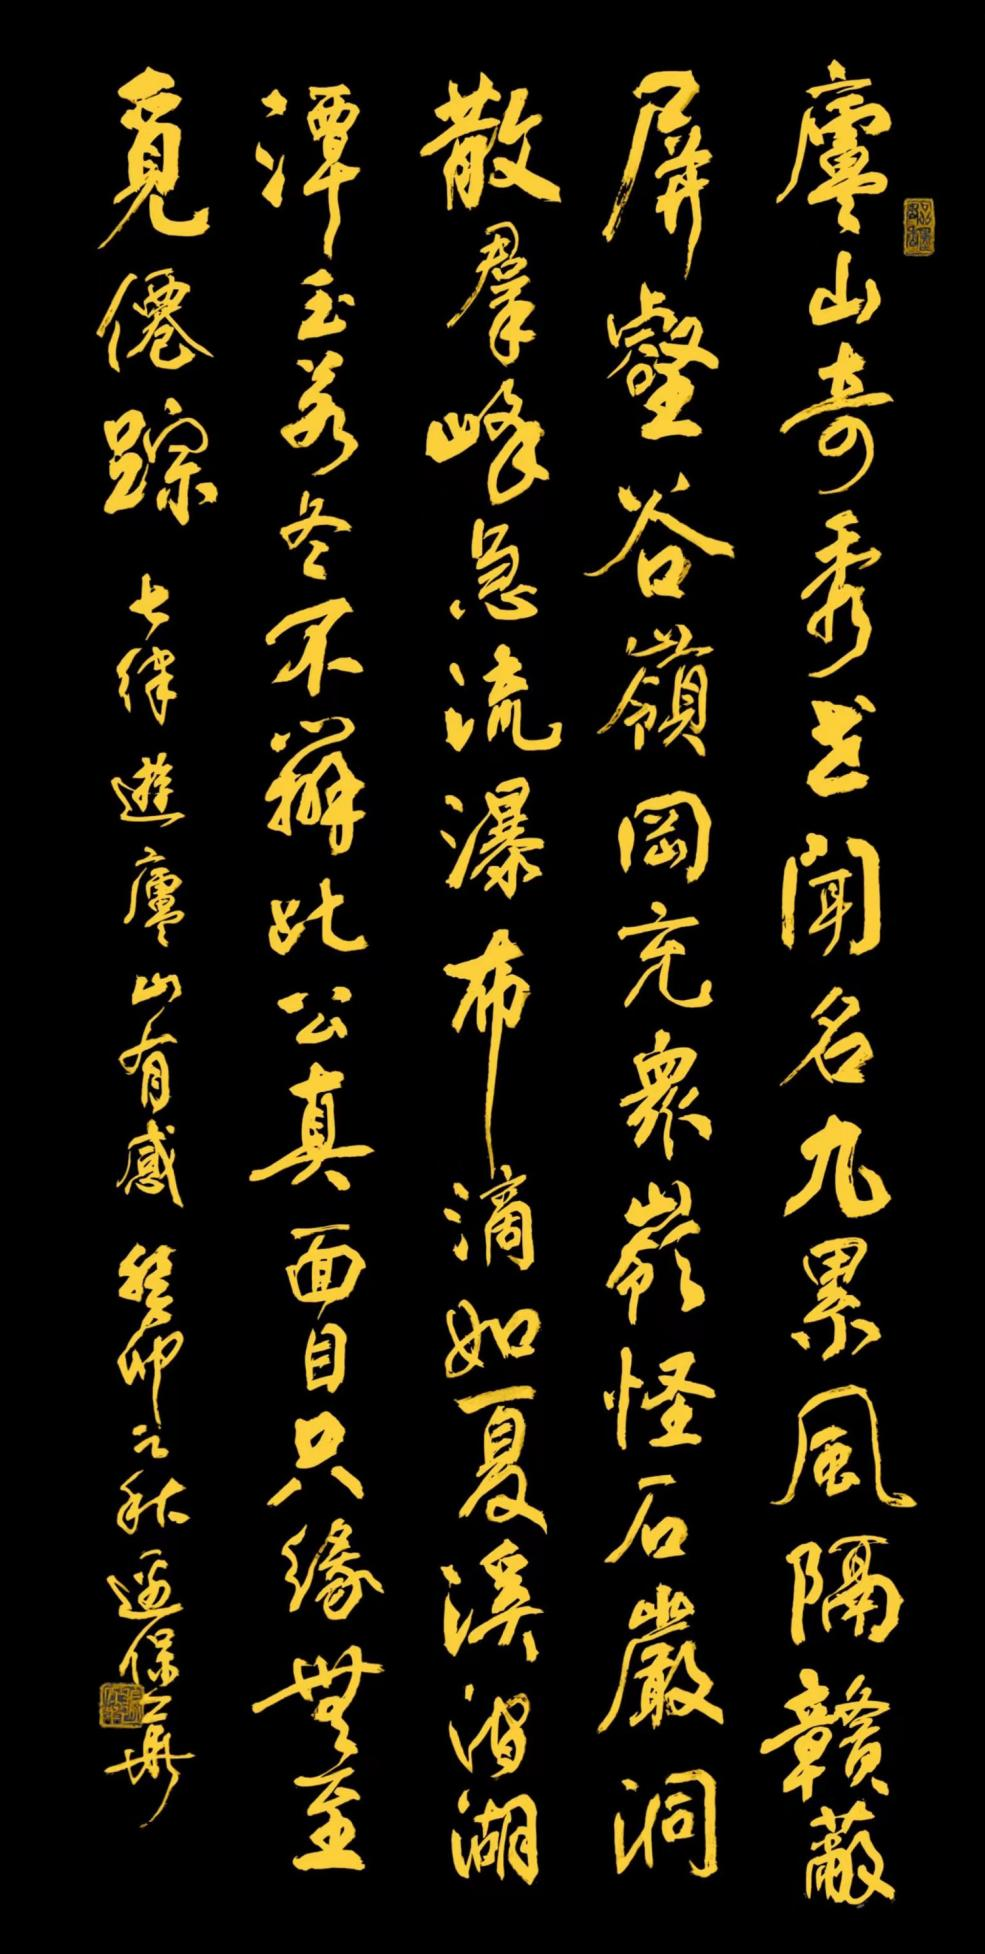 廬山奇秀世聞名九累風隔贛蔽
屏壑谷嶺岡充衆嶺怪石巖洞
散羣峰急流瀑布滴如夏溪湖
潭玉若冬不辨此公真面目只緣無至
覓僊踪 七律 遊廬山有感 癸卯之秋 保華